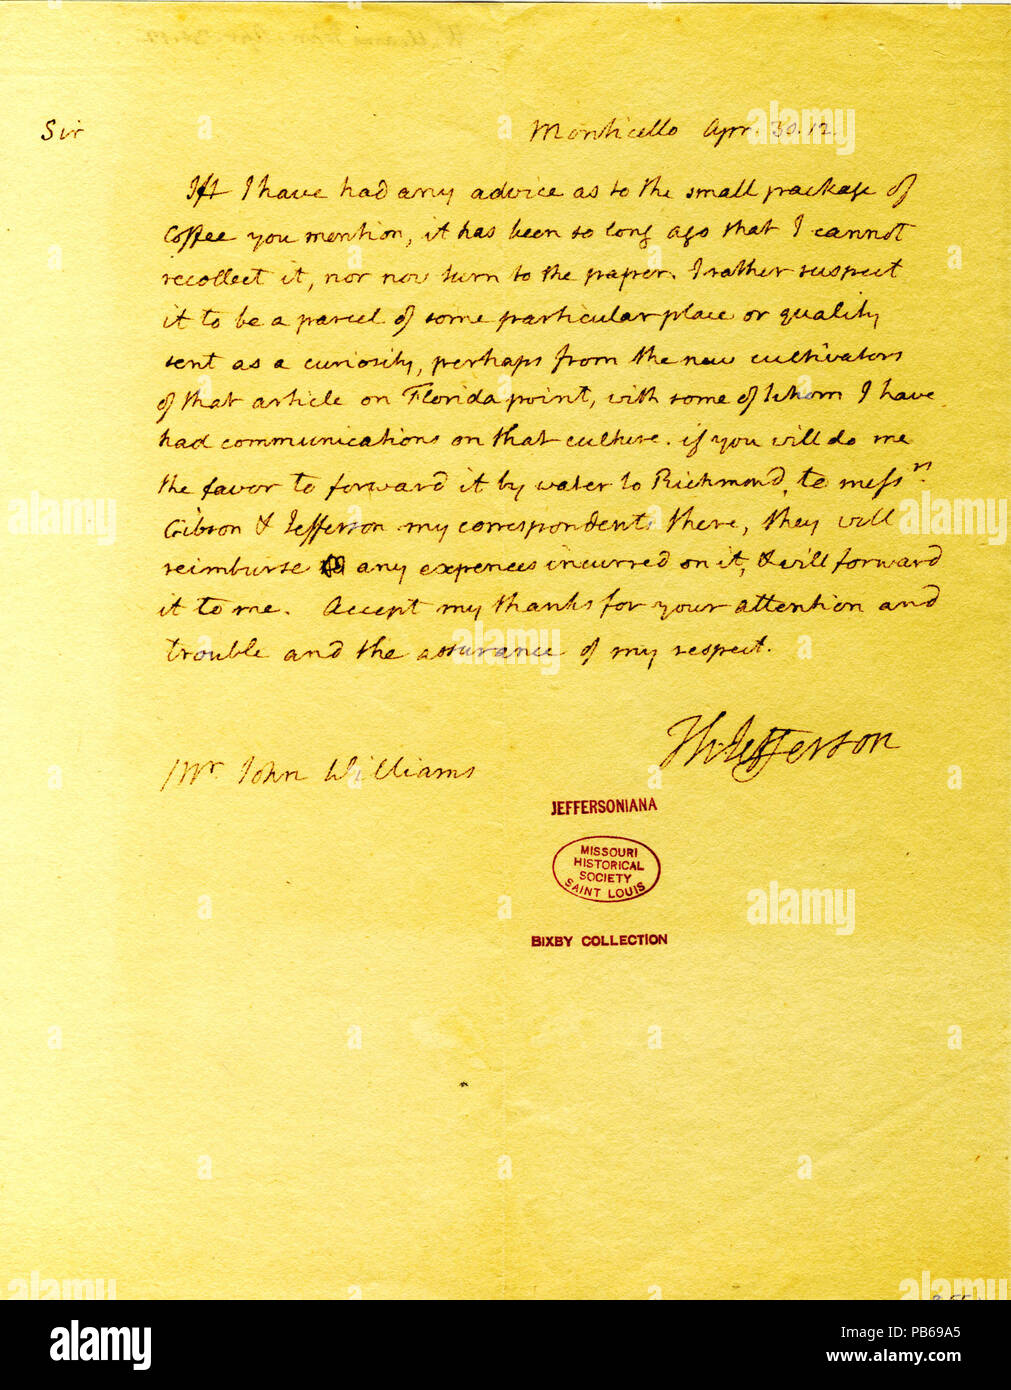 Sir Monticello Apr. 30. 12.
If I have had any advice as to the small package of
coffee you mention, it has been so long ago that I cannot
recollect it, nor now turn to the paper. I rather suspect
it to be a parcel of some particular place or quality
sent as a curiosity, perhaps from the new cultivators
of that article on Florida point, with some of whom I have
had communications on that culture. if you will do me
the favor to forward it by water to Richmond, to messrs
Gibson & Jefferson my correspondents there, they will
reimburse any expences incurred on it, & will forward
it to me. Accept my thanks for your attention and
trouble and the assurance of my respect.
Th: Jefferson
Mr. John Williams
JEFFERSONIANA
MISSOURI
HISTORICAL
SOCIETY
SAINT LOUIS
BIXBY COLLECTION
alamy
alamy
Image ID: PB69A5
www.alamy.com